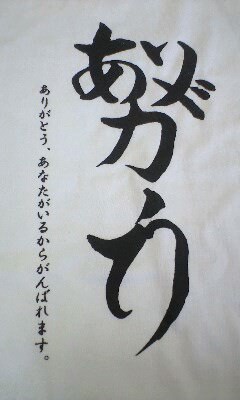 努力
ありがとう、あなたがいるからがんばれます。